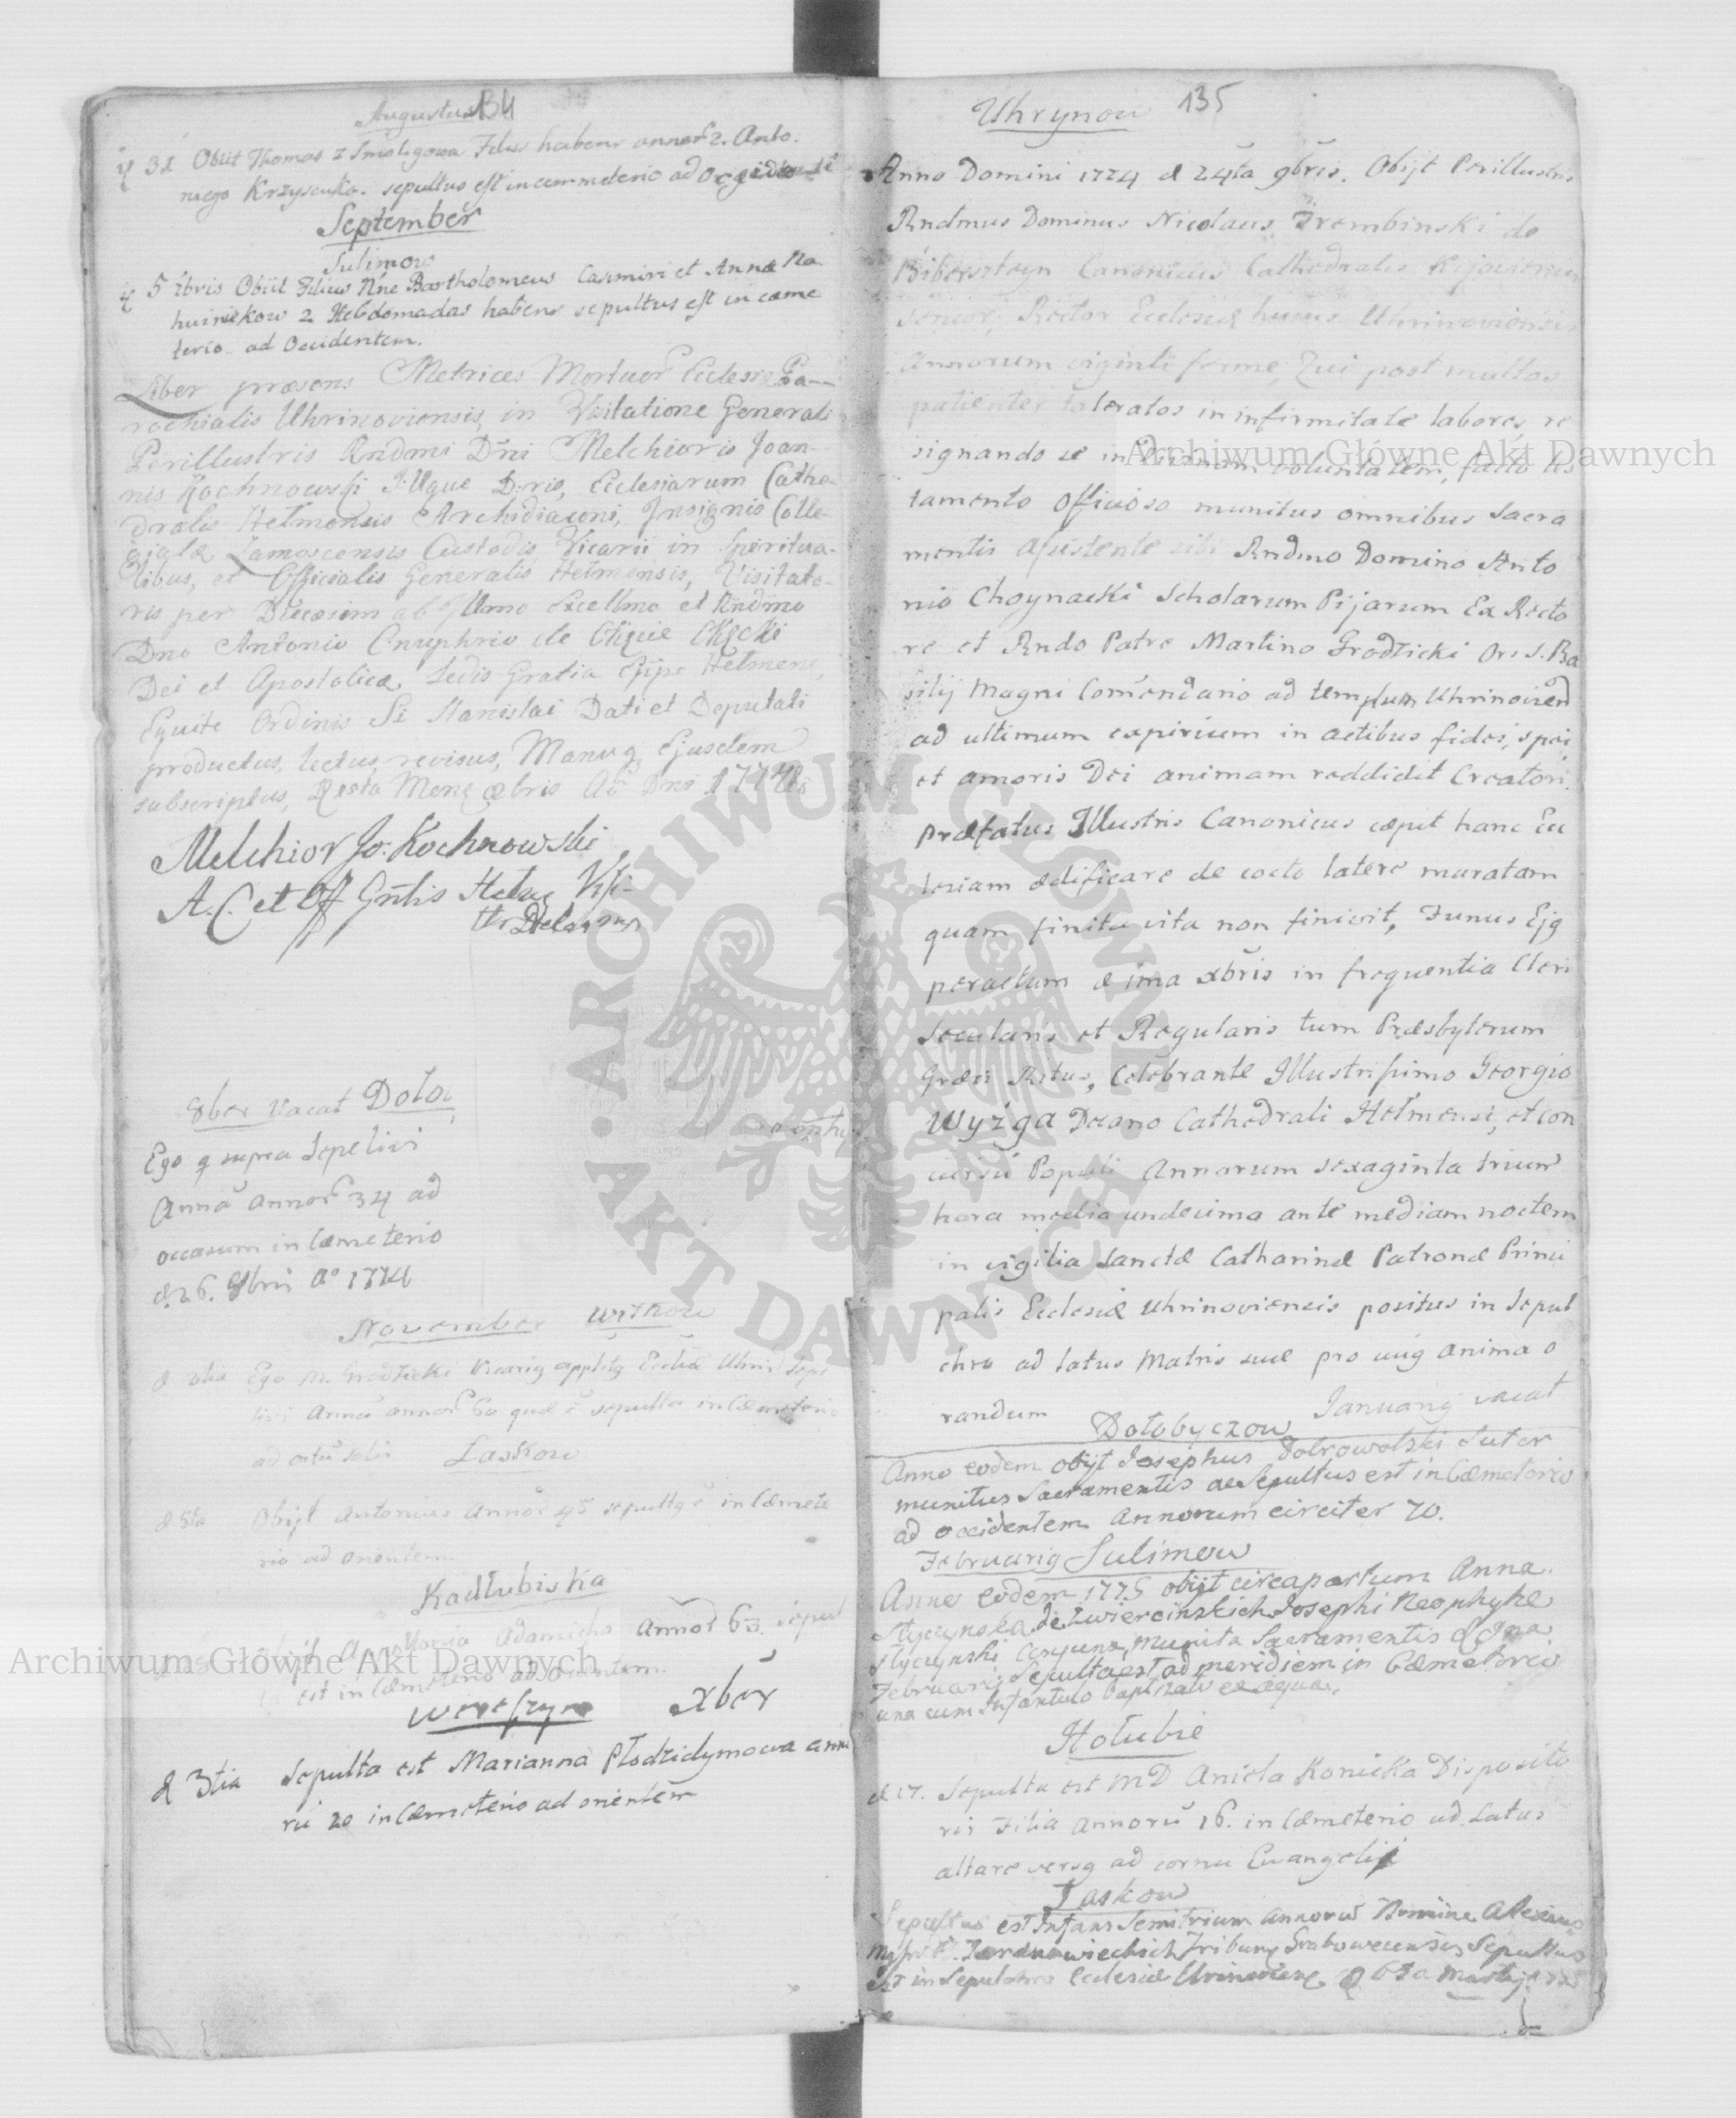 Augustus 134
31 Obiit Thomas z Smoligowa Filius habens annos 2. Anto.
niego Krzyscuka. sepultus est in cemmeterio ad
September
Sulimow
5 7bris Obiit Filius Nñe Bartholomeus Casimiri et Annæ Ma
huinikow 2 Hebdomadas habens sepultus est in cæme
terio ad Occidentem.
Liber præsens Metrices Mortuor Ecclesiæ Pa
rochialis Uhrinoviensis, in Visitatione Generali
Perillustris Rndmi Dni Melchioris Joan
nis Kochnowski I: Uque D:ris, Ecclesiarum Cathe
dralis Helmensis Archidiaconi, Insignis Colle
giatæ Zamoscensis Custodis, Vicarii in Spiritua
libus, et Officialis Generalis Helmensis, Visitato
ris per Diæcesim ab Illmo Excellmo et Rndmo
Dno Antonio Onuphrio de Okęcie Okęcki
Dei et Apostolicæ Sedis Gratia Eppo Helmens,
Equite Ordinis Sti Stanislai Dati et Deputati
productus, lectus, revisus, Manuq Ejusdem
subscriptus, Mens 8bris Ao Dni 1774
Melchior Jo: Kochnowski
A. C. et Off Gnlis Helms Visi
8ber vacat Doło
Ego q supra Sepelivi
Anna annor 34 ad
occasum in Cæmeterio
d. 26. 8bris Ao 1774
November Witkow
Ego M. Grodzicki Vicarig Eccliæ Uhrin Sepe
livi Anna annor 60 quæ e sepulta in Cæmeterio
ad ortu solis Laskow
d 5ta Obijt Antonius Annor 45 sepultq e in Cæmete
rio ad orientem.
Kadłubiska
Obijt Apollonia Adamicha Annor 63. Sepul
est in Cæmeterio ad Orientem.
Wereszyn Xber
d 3tia Sepulta est Marianna Płodzidymowa anno
ru 20 in Cæmeterio ad orientem
Uhrynow 135
Anno Domini 1774 d 24ta 9bris. Obijt Perillustris
Rndmus Dominus Nicolaus Trembinski de
Biberszteyn Canonicus Cathedralis Kijoviensis
senior, Rector Ecclesiæ huius Uhrinoviensis
Annorum viginti ferme, Qui post multos
patienter toleratos in infirmitate labores, re
signando se in Divinam voluntatem, facto tes
tamento officioso munitus omnibus Sacra
mentis assistente sibi Rndmo Domino Anto
nio Choynacki Scholarum Pijarum Ex Recto
re et Rndo Patre Martino Grodzicki Ors S. Ba
silij Magni Comendario ad templum Uhrinovien
ad ultimum expirium in actibus fidei, spei,
et amoris Dei animam reddidit Creatori.
Præfatus Illustris Canonicus cæpit hanc Ecc
lesiam ædificare de cocto latere muratam
quam finita vita non finivit, Funus Ejq
peractum d 1ma Xbris in frequentia Cleri
Secularis et Regularis tum Præsbyterum
Græci Ritus, Celebrante Illustrissimo Georgio
Wyżga Decano Cathedrali Helmensi, et con
cursu Populi Annorum sexaginta trium
hora media undecima ante mediam noctem
in vigilia Sanctæ Catharinæ Patronæ Princi
palis Ecclesiæ Uhrinoviensis positus in Sepul
chro ad latus Matris suæ pro cuiq anima o
randum Januarij vacat
Dołobyczow
Anno eodem obijt Josephus Dobrowolski Sutor
munitus Sacramentis ac Sepultus est in Cæmeterio
ad occidentem Annorum circiter 70.
Februariq Sulimow
Anno eodem 1775 obijt circa partum Anna
Styczynska de Zwiercinskich Josephi Neophytæ
Styczynski Conjunx, munita Sacramentis
Februarij Sepulta est ad meridiem in Cæmeterio
una cum Infantulo Baptizato ex aqua.
Hołubie
d 17. Sepulta est MD Aniela Konicka Disposito
ris Filia Annoru 16. in Cæmeterio ad Latus
altare versq ad cornu Evangelij
Laskow
Sepultus est Infans Semitrium annoru Nomine Alexius
Tribuni Grabowecensis Sepultus
est in Sepulchro Ecclesiæ
Archiwum Główne Akt Dawnych
Archiwum Główne Akt Dawnych
ARCHIWUM GŁÓWNE AKT DAWNYCH